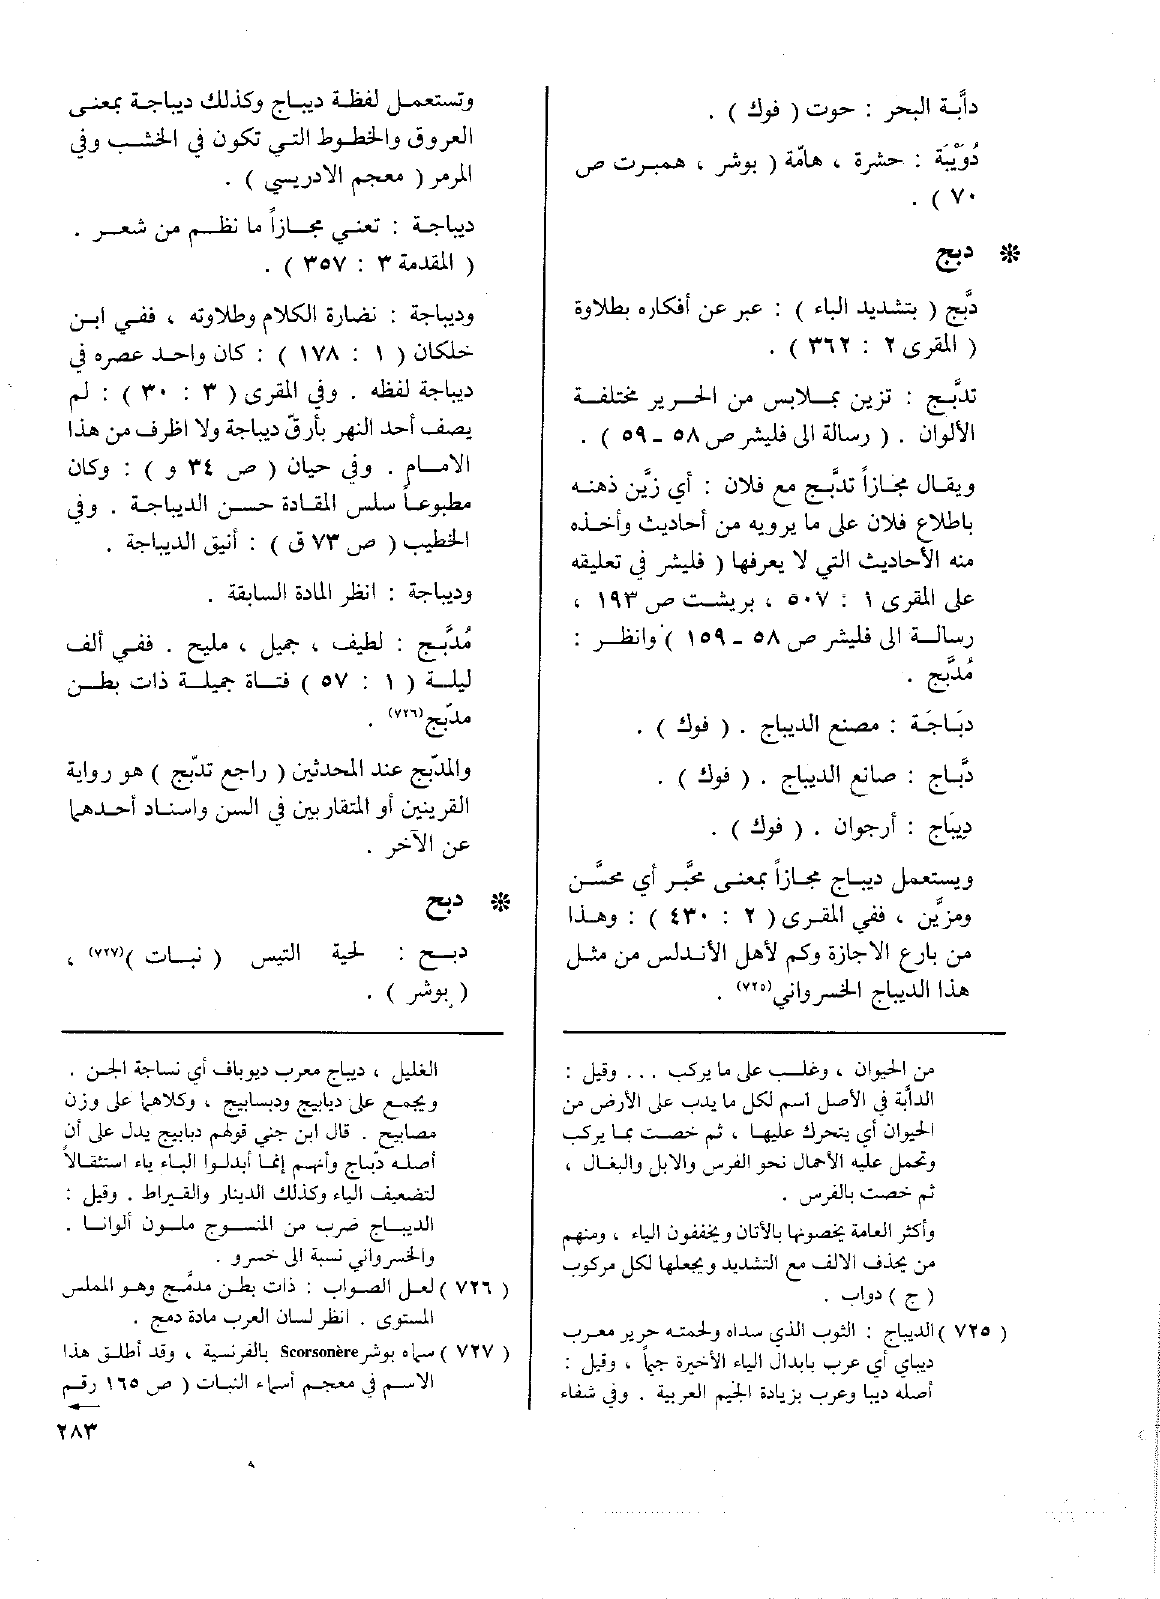 دابَّة البحر : حوت ( فوك ) .
دُوَيْبَّة : حشرة ، هامّة ( بوشر ، همبرت ص
٧٠ ) .
❊ دبج
دبَّج ( بتشديد الباء ) : عبر عن أفكاره بطلاوة
( المقرى ٢ : ٣٦٢ ) .
تدبَّج : تزين بملابس من الحرير مختلفة
الألوان . ( رسالة الى فليشر ص ٥٨ ـ ٥٩ ) .
ويقال مجازاً تدبَّج مع فلان : أي زيَّن ذهنه
باطلاع فلان على ما يرويه من أحاديث وأخذه
منه الأحاديث التي لا يعرفها ( فليشر في تعليقه
على المقرى ١ : ٥٠٧ ، بريشت ص ١٩٣ ،
رسالة الى فليشر ص ٥٨ ـ ١٥٩ ) وانظر :
مُدبَّج .
دبَاجَة : مصنع الديباج . ( فوك ) .
دبَّاج : صانع الديباج . ( فوك ) .
دِيبَاج : أرجوان . ( فوك ) .
ويستعمل ديباج مجازاً بمعنى محبَّر أي محسَّن
ومزيَّن ، ففي المقرى ( ٢ : ٤٣٠ ) : وهذا
من بارع الاجازة وكم لأهل الأندلس من مثل
هذا الديباج الخسرواني(٧٢٥) .
من الحيوان ، وغلب على ما يركب ... وقيل :
الدابَّة في الأصل اسم لكل ما يدب على الأرض من
الحيوان أي يتحرك عليها ، ثم خصت بما يركب
وتحمل عليه الأحمال نحو الفرس والابل والبغال ،
ثم خصت بالفرس .
وأكثر العامة يخصونها بالأتان ويخففون الباء ، ومنهم
من يحذف الالف مع التشديد ويجعلها لكل مركوب
( ج ) دواب .
( ٧٢٥ ) الديباج : الثوب الذي سداه ولحمته حرير معرب
ديباي أي عرب بابدال الياء الأخيرة جيماً ، وقيل :
أصله ديبا وعرب بزيادة الجيم العربية . وفي شفاء
وتستعمل لفظة ديباج وكذلك ديباجة بمعنى
العروق والخطوط التي تكون في الخشب وفي
المرمر ( معجم الادريسي ) .
ديباجة : تعني مجازاً ما نظم من شعر .
( المقدمة ٣ : ٣٥٧ ) .
وديباجة : نضارة الكلام وطلاوته ، ففي ابن
خلكان ( ١ : ١٧٨ ) : كان واحد عصره في
ديباجة لفظه . وفي المقرى ( ٣ : ٣٠ ) : لم
يصف أحد النهر بأرقّ ديباجة ولا اظرف من هذا
الامام . وفي حيان ( ص ٣٤ و ) : وكان
مطبوعاً سلس المقادة حسن الديباجة . وفي
الخطيب ( ص ٧٣ ق ) : أنيق الديباجة .
وديباجة : انظر المادة السابقة .
مُدبَّج : لطيف ، جميل ، مليح . ففي ألف
ليلة ( ١ : ٥٧ ) فتاة جميلة ذات بطن
مدبّج(٧٢٦) .
والمدبّج عند المحدثين ( راجع تدبّج ) هو رواية
القرينين أو المتقاربين في السن واسناد أحدهما
عن الآخر .
❊ دبح
دبح : لحية التيس ( نبات )(٧٢٧) ،
( بوشر ) .
الغليل ، ديباج معرب ديوباف أي نساجة الجن .
ويجمع على ديابيج ودبابيج ، وكلاهما على وزن
مصابيح . قال ابن جني قولهم دبابيج يدل على أن
أصله دبّاج وأنهم إنما أبدلوا الباء ياء استثقالاً
لتضعيف الباء وكذلك الدينار والقيراط . وقيل :
الديباج ضرب من المنسوج ملون ألوانا .
والخسرواني نسبة الى خسرو .
( ٧٢٦ ) لعل الصواب : ذات بطن مدمَّج وهو المملس
المستوى . انظر لسان العرب مادة دمج .
( ٧٢٧ ) سماه بوشر Scorsonère بالفرنسية ، وقد أطلق هذا
الاسم في معجم أسماء النبات ( ص ١٦٥ رقم
٢٨٣